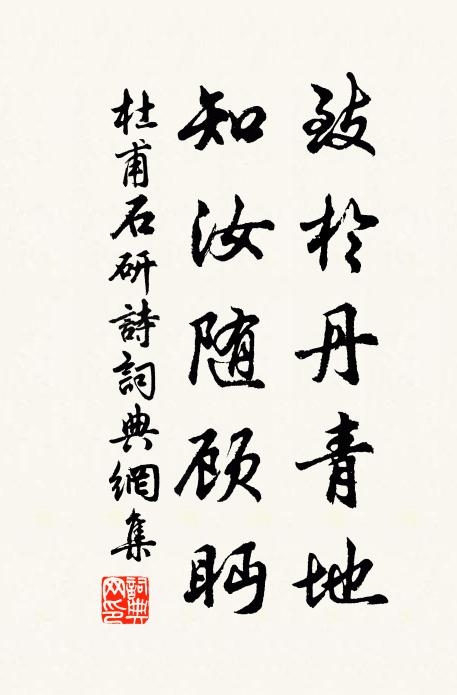 致於丹青地
知汝随顾眄
杜甫石研詩詞典網集
詞典网印